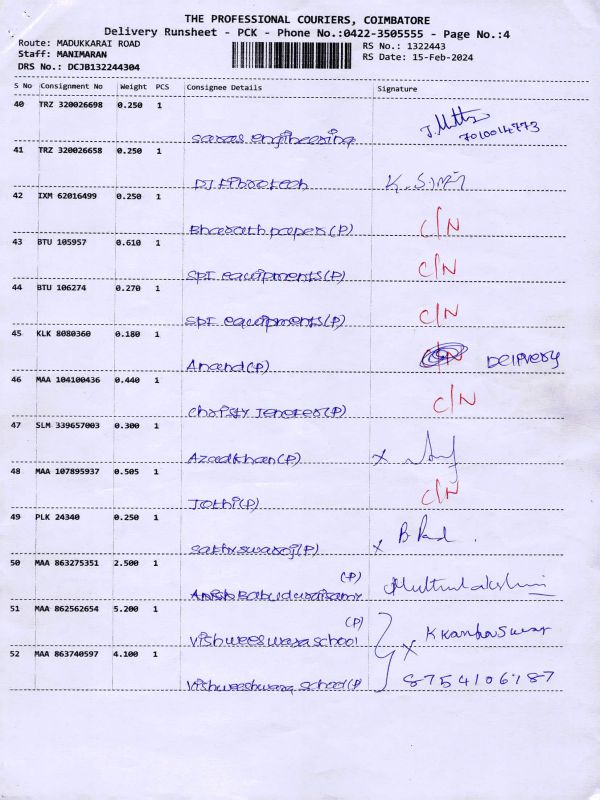 THE PROFESSIONAL COURIERS, COIMBATORE
Delivery Runsheet - PCK - Phone No.:0422-3505555 - Page No.:4
Route: MADUKKARAI ROAD RS No.: 1322443
Staff: MANIMARAN RS Date: 15-Feb-2024
DRS No.: DCJB132244304
S No Consignment No Weight PCS Consignee Details Signature
40 TRZ 320026698 0.250 1
saras engineering 7010014773
41 TRZ 320026658 0.250 1
42 IXM 62016499 0.250 1
Bharath papers (P) C/N
43 BTU 105957 0.610 1
SPI equipments (P) C/N
44 BTU 106274 0.270 1
SPI equipments (P) C/N
45 KLK 8080360 0.180 1
Anand (P) Delivery
46 MAA 104100436 0.440 1
(P) C/N
47 SLM 339657003 0.300 1
Azadkhan (P) x
48 MAA 107895937 0.505 1
Jothi (P) C/N
49 PLK 24340 0.250 1
(P) x
50 MAA 863275351 2.500 1
(P)
51 MAA 862562654 5.200 1
(P)
Vishweeswara school x
52 MAA 863740597 4.100 1
Vishweeshwara school (P 8754106187